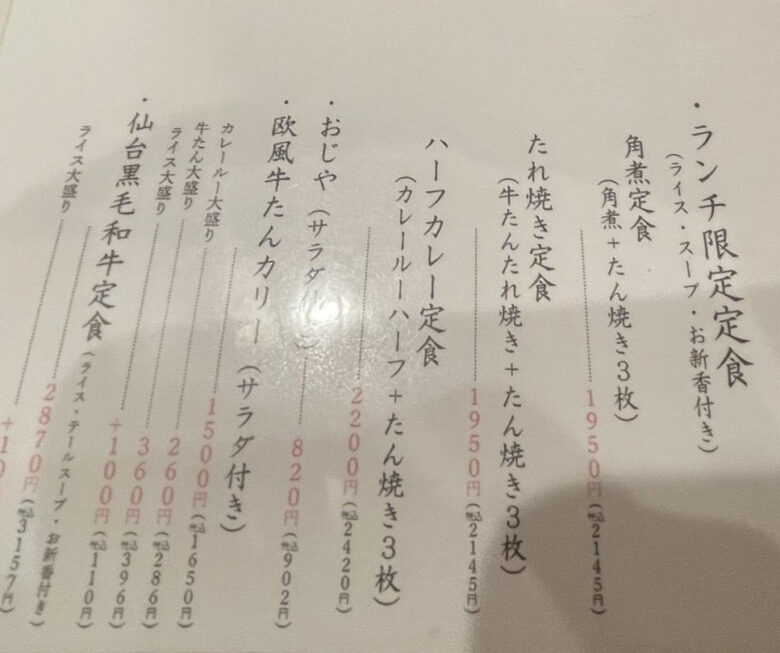 ・ランチ限定定食
（ライス・スープ・お新香付き）
角煮定食
（角煮+たん焼き3枚）
1950円（税込2145円）
たれ焼き定食
（牛たんたれ焼き+たん焼き3枚）
1950円（税込2145円）
ハーフカレー定食
（カレールーハーフ+たん焼き3枚）
2200円（税込2420円）
・おじや（サラダ
820円（税込902円）
・欧風牛たんカリー（サラダ付き）
1500円（税込1650円）
カレールー大盛り
260円（税込286円）
牛たん大盛り
360円（税込396円）
ライス大盛り
+100円（税込110円）
・仙台黒毛和牛定食（ライス・テールスープ・お新香付き）
2870円（税込3157円）
ライス大盛り